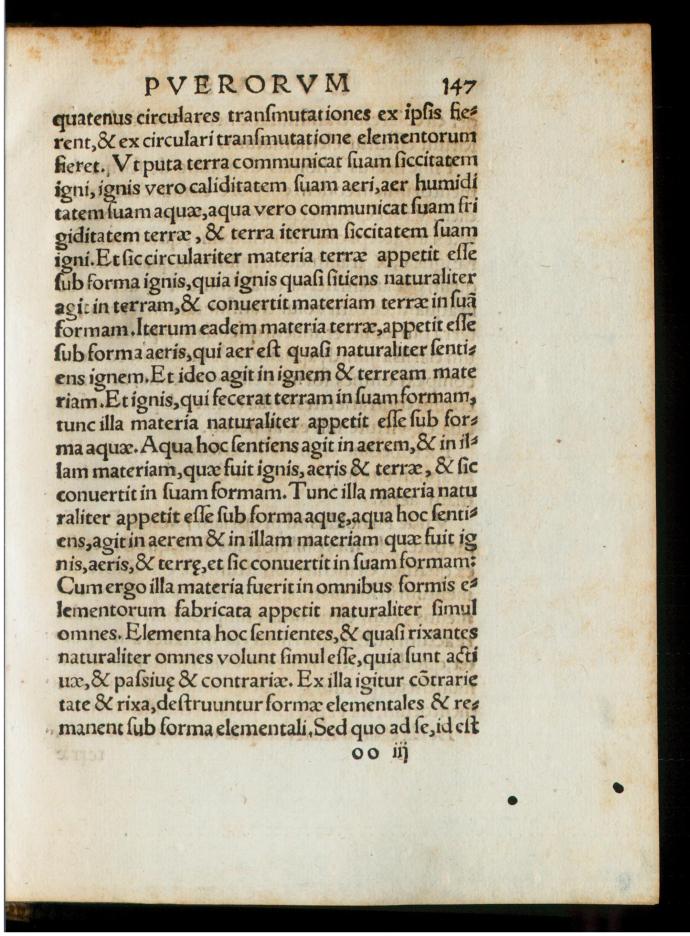 PVERORVM 147
quatenus circulares tranſmutationes ex ipſis fie⸗
rent,& ex circulari tranſmutatione elementorum
fieret. Vt puta terra communicat ſuam ſiccitatem
igni, ignis vero caliditatem ſuam aeri,aer humidi
tatem ſuam aquæ,aqua vero communicat ſuam fri
giditatem terræ, & terra iterum ſiccitatem ſuam
igni.Et ſic circulariter materia terræ appetit eſſe
ſub forma ignis,quia ignis quaſi ſitiens naturaliter
agit in terram,& conuertit materiam terræ in ſuã
formam.Iterum eadem materia terræ,appetit eſſe
ſub forma aeris,qui aer eſt quaſi naturaliter ſenti⸗
ens ignem.Et ideo agit in ignem & terream mate
riam.Et ignis,qui fecerat terram in ſuam formam,
tunc illa materia naturaliter appetit eſſe ſub for⸗
ma aquæ.Aqua hoc ſentiens agit in aerem,& in il⸗
lam materiam,quæ fuit ignis, aeris & terræ, & ſic
conuertit in ſuam formam. Tunc illa materia natu
raliter appetit eſſe ſub forma aquę,aqua hoc ſenti⸗
ens,agit in aerem & in illam materiam quæ fuit ig
nis,aeris,& terrę,et ſic conuertit in ſuam formam:
Cum ergo illa materia fuerit in omnibus formis e⸗
lementorum fabricata appetit naturaliter ſimul
omnes. Elementa hoc ſentientes,& quaſi rixantes
naturaliter omnes volunt ſimul eſſe,quia ſunt acti
uæ,& paſsiuę & contrariæ. Ex illa igitur cõtrarie
tate & rixa,deſtruuntur formæ elementales & re⸗
manent ſub forma elementali,Sed quo ad ſe,id eſt
oo iij